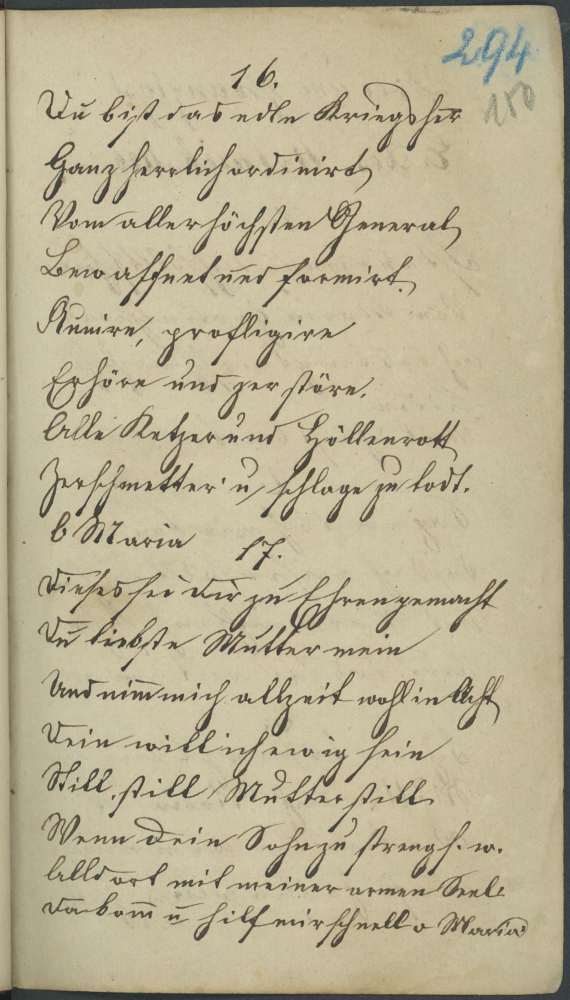 294
150
16.
Du bist das edle Kriegsher
Ganz herrlich ordinirt
Vom allerhöchsten General
Bewaffnet und formirt.
Runire, profligire
Erhöre und zerstöre.
Alle Ketzer und Höllenrott
Zerschmetter u schlage zu todt.
O Maria
17.
Dieses sei dir zu Ehren gemacht
Du liebste Mutter mein
Und nim̅ mich allzeit wohl in Acht
Dein will ich ewig sein
Still, still Mutter still
Wenn Dein Sohn zu streng s. w.
Alldort mit meiner armen Seel:
Da kom̅ u hilf mir schnell o Maria